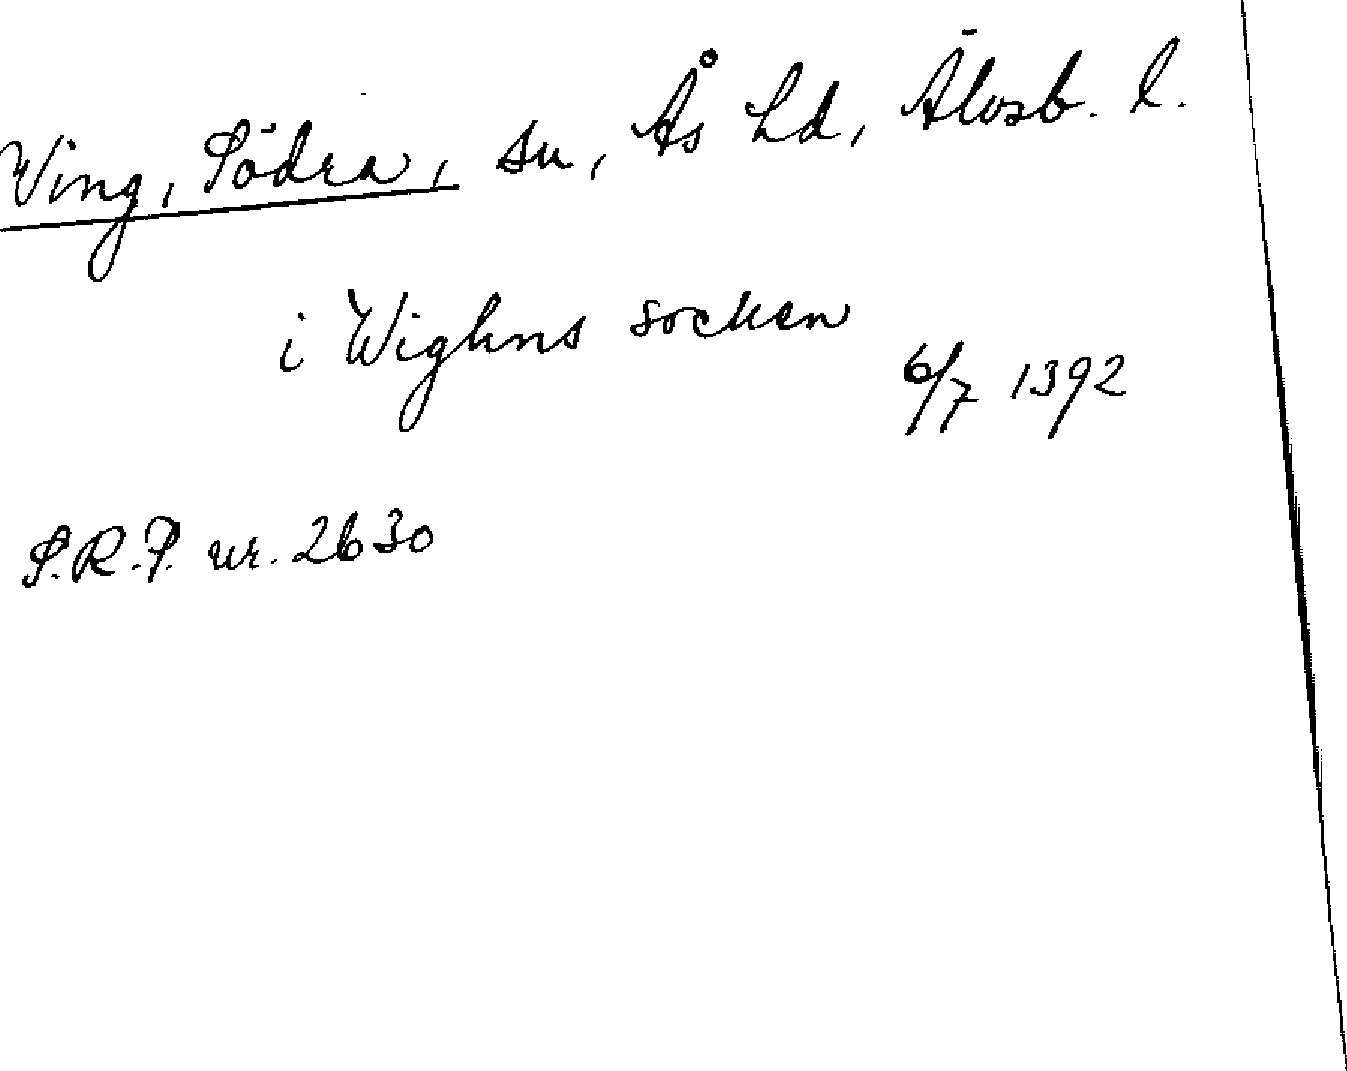 Ving, Södra, sn, Ås hd, Älvsb. l.
i Wighns socken
6/7 1392
S.R.P. nr. 2630